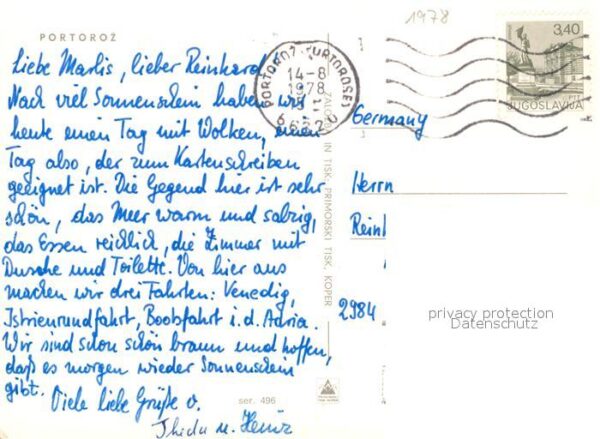 1978
PORTOROŽ
Liebe Marlis, lieber Reinhard
Nach viel Sonnenschein haben wir
heute einen Tag mit Wolken, einen
Tag also, der zum Kartenschreiben
geeignet ist. Die Gegend hier ist sehr
schön, das Meer warm und salzig,
das Essen reichlich, die Zimmer mit
Dusche und Toilette. Von hier aus
machen wir drei Fahrten: Venedig,
Istrienrundfahrt, Bootsfahrt i. d. Adria.
Wir sind schon schön braun und hoffen,
daß es morgen wieder Sonnenschein
gibt.
Viele liebe Grüße v.
u. Heinz
ser. 496
ZALOŽIL IN TISK: PRIMORSKI TISK, KOPER
PORTOROŽ (PORTOROSE)
14-8
1978
66320
3,40
JUGOSLAVIJA
PTT
Germany
Herrn
Rein
2984
privacy protection
Datenschutz